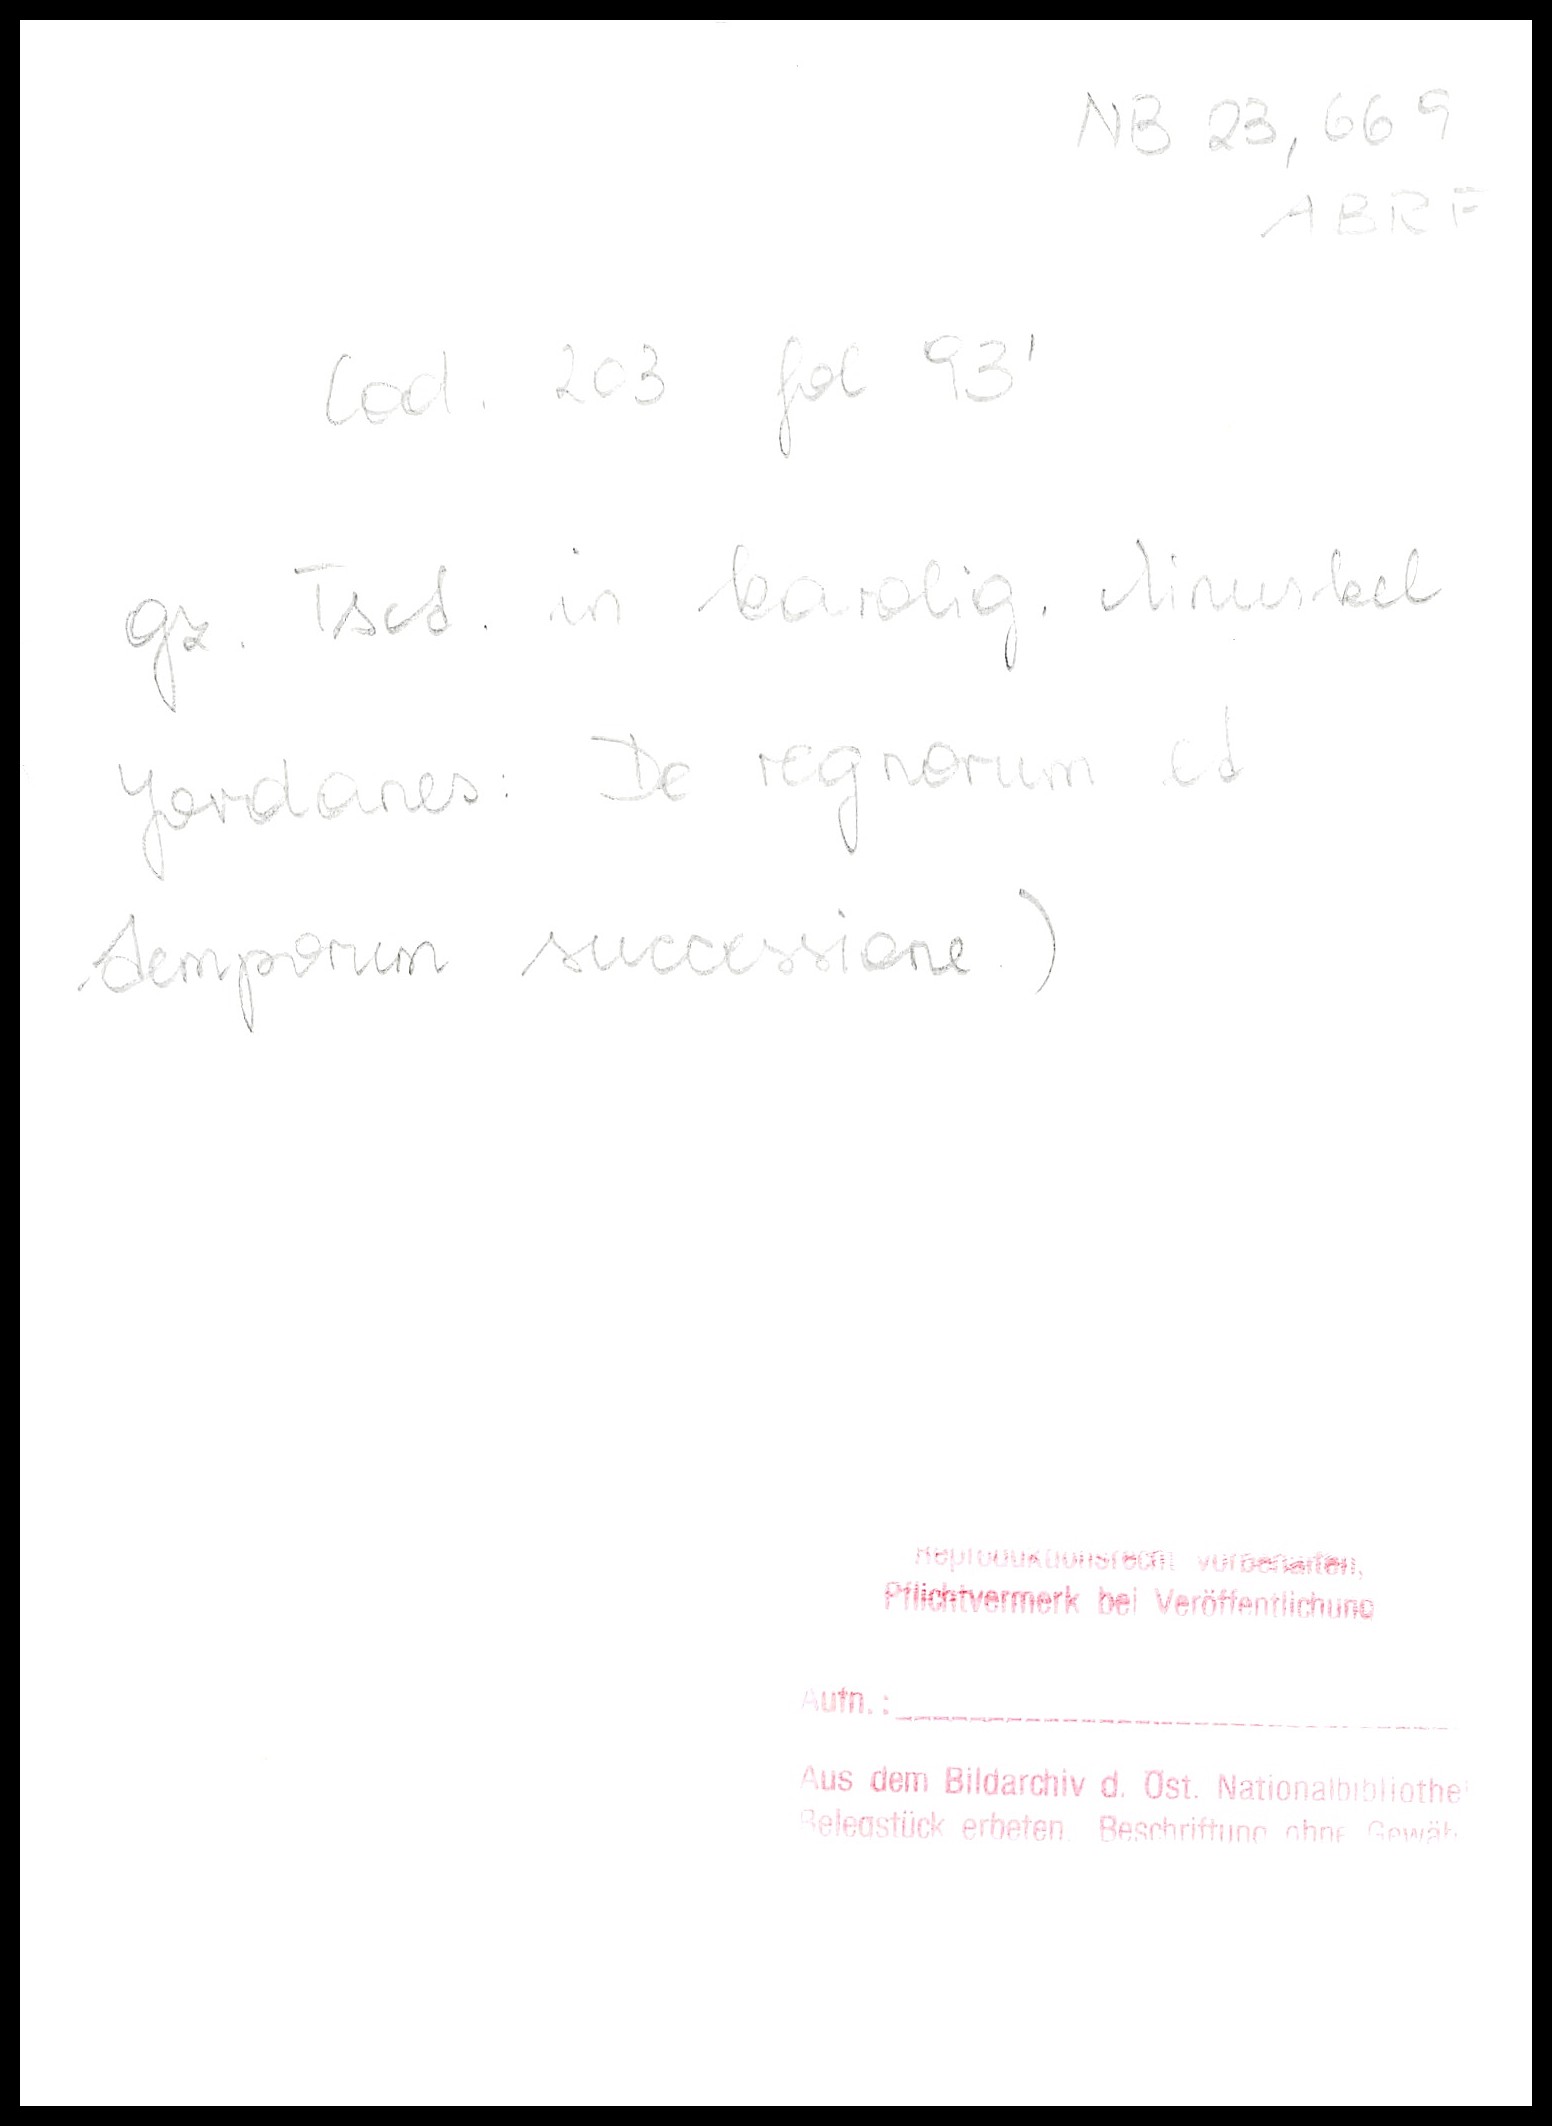 NB 23,669
ABRF
Cod. 203 fol 93'
gz. Tsct. in karolig. Minuskel
Jordanes: De regnorum et
temporum successione)
Reproduktionsrecht vorbehalten,
Pflichtvermerk bei Veröffentlichung
Aufn.:
Aus dem Bildarchiv d. Öst. Nationalbibliothe
Belegstück erbeten. Beschriftung ohne Gewäh